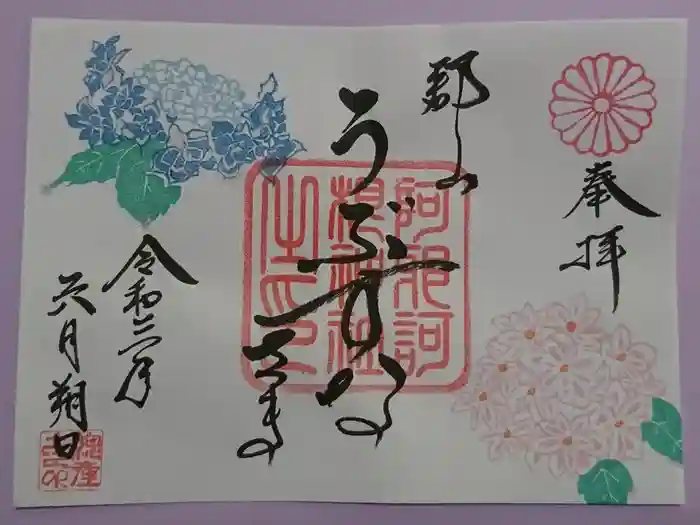 奉拝
郡山
うぶすな
さま
阿邪訶
根神社
之印
令和二年
六月朔日